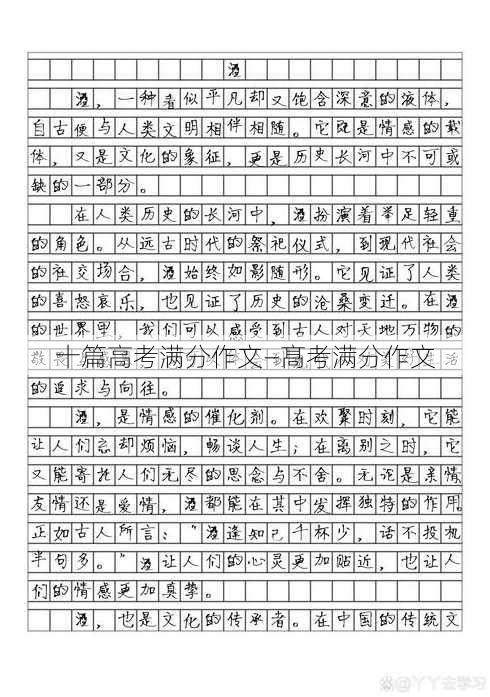 酒
酒，一种看似平凡却又饱含深意的液体，
自古便与人类文明相伴相随。它既是情感的载
体，又是文化的象征，更是历史长河中不可或
缺的一部分。
在人类历史的长河中，酒扮演着举足轻重
的角色。从远古时代的祭祀仪式，到现代社会
的社交场合，酒始终如影随形。它见证了人类
的喜怒哀乐，也见证了历史的沧桑变迁。在酒
的世界里，我们可以感受到古人对天地万物的
十篇高考满分作文—高考满分作文
敬畏 生活
的追求与向往。
酒，是情感的催化剂。在欢聚时刻，它能
让人们忘却烦恼，畅谈人生；在离别之时，它
又能寄托人们无尽的思念与不舍。无论是亲情
友情还是爱情，酒都能在其中发挥独特的作用。
正如古人所言：“酒逢知己千杯少，话不投机
半句多。”酒让人们的心灵更加贴近，也让人
们的情感更加真挚。
酒，也是文化的传承者。在中国的传统文
@丫丫会学习